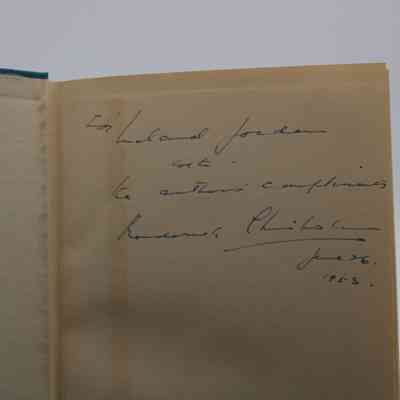 For Leland Jordan
with
the author's compliments
Roderick Chisholm
June 26.
1953.